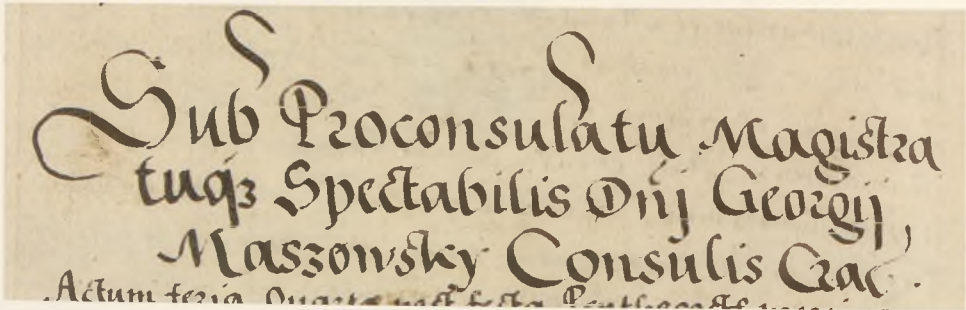 Sub Proconsulatu Magistra
tuqꝫ Spectabilis Dnj Georgij
Maszowsky Consulis Crac.
Actum feria Quarta post festa